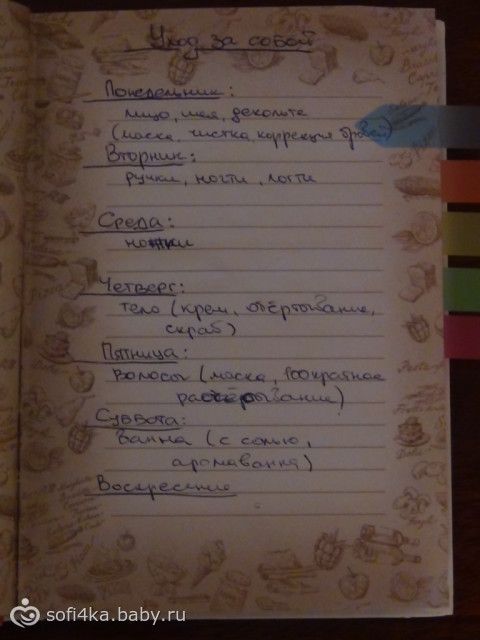 Уход за собой
Понедельник:
лицо, шея, декольте
(маска, чистка, коррекция бровей)
Вторник:
ручки, ногти, локти
Среда:
ножки
Четверг:
тело (крем, обёртывание,
скраб)
Пятница:
волосы (маска, 100кратное
расчёсывание)
Суббота:
ванна (с солью,
аромаванна)
Воскресение
sofi4ka.baby.ru